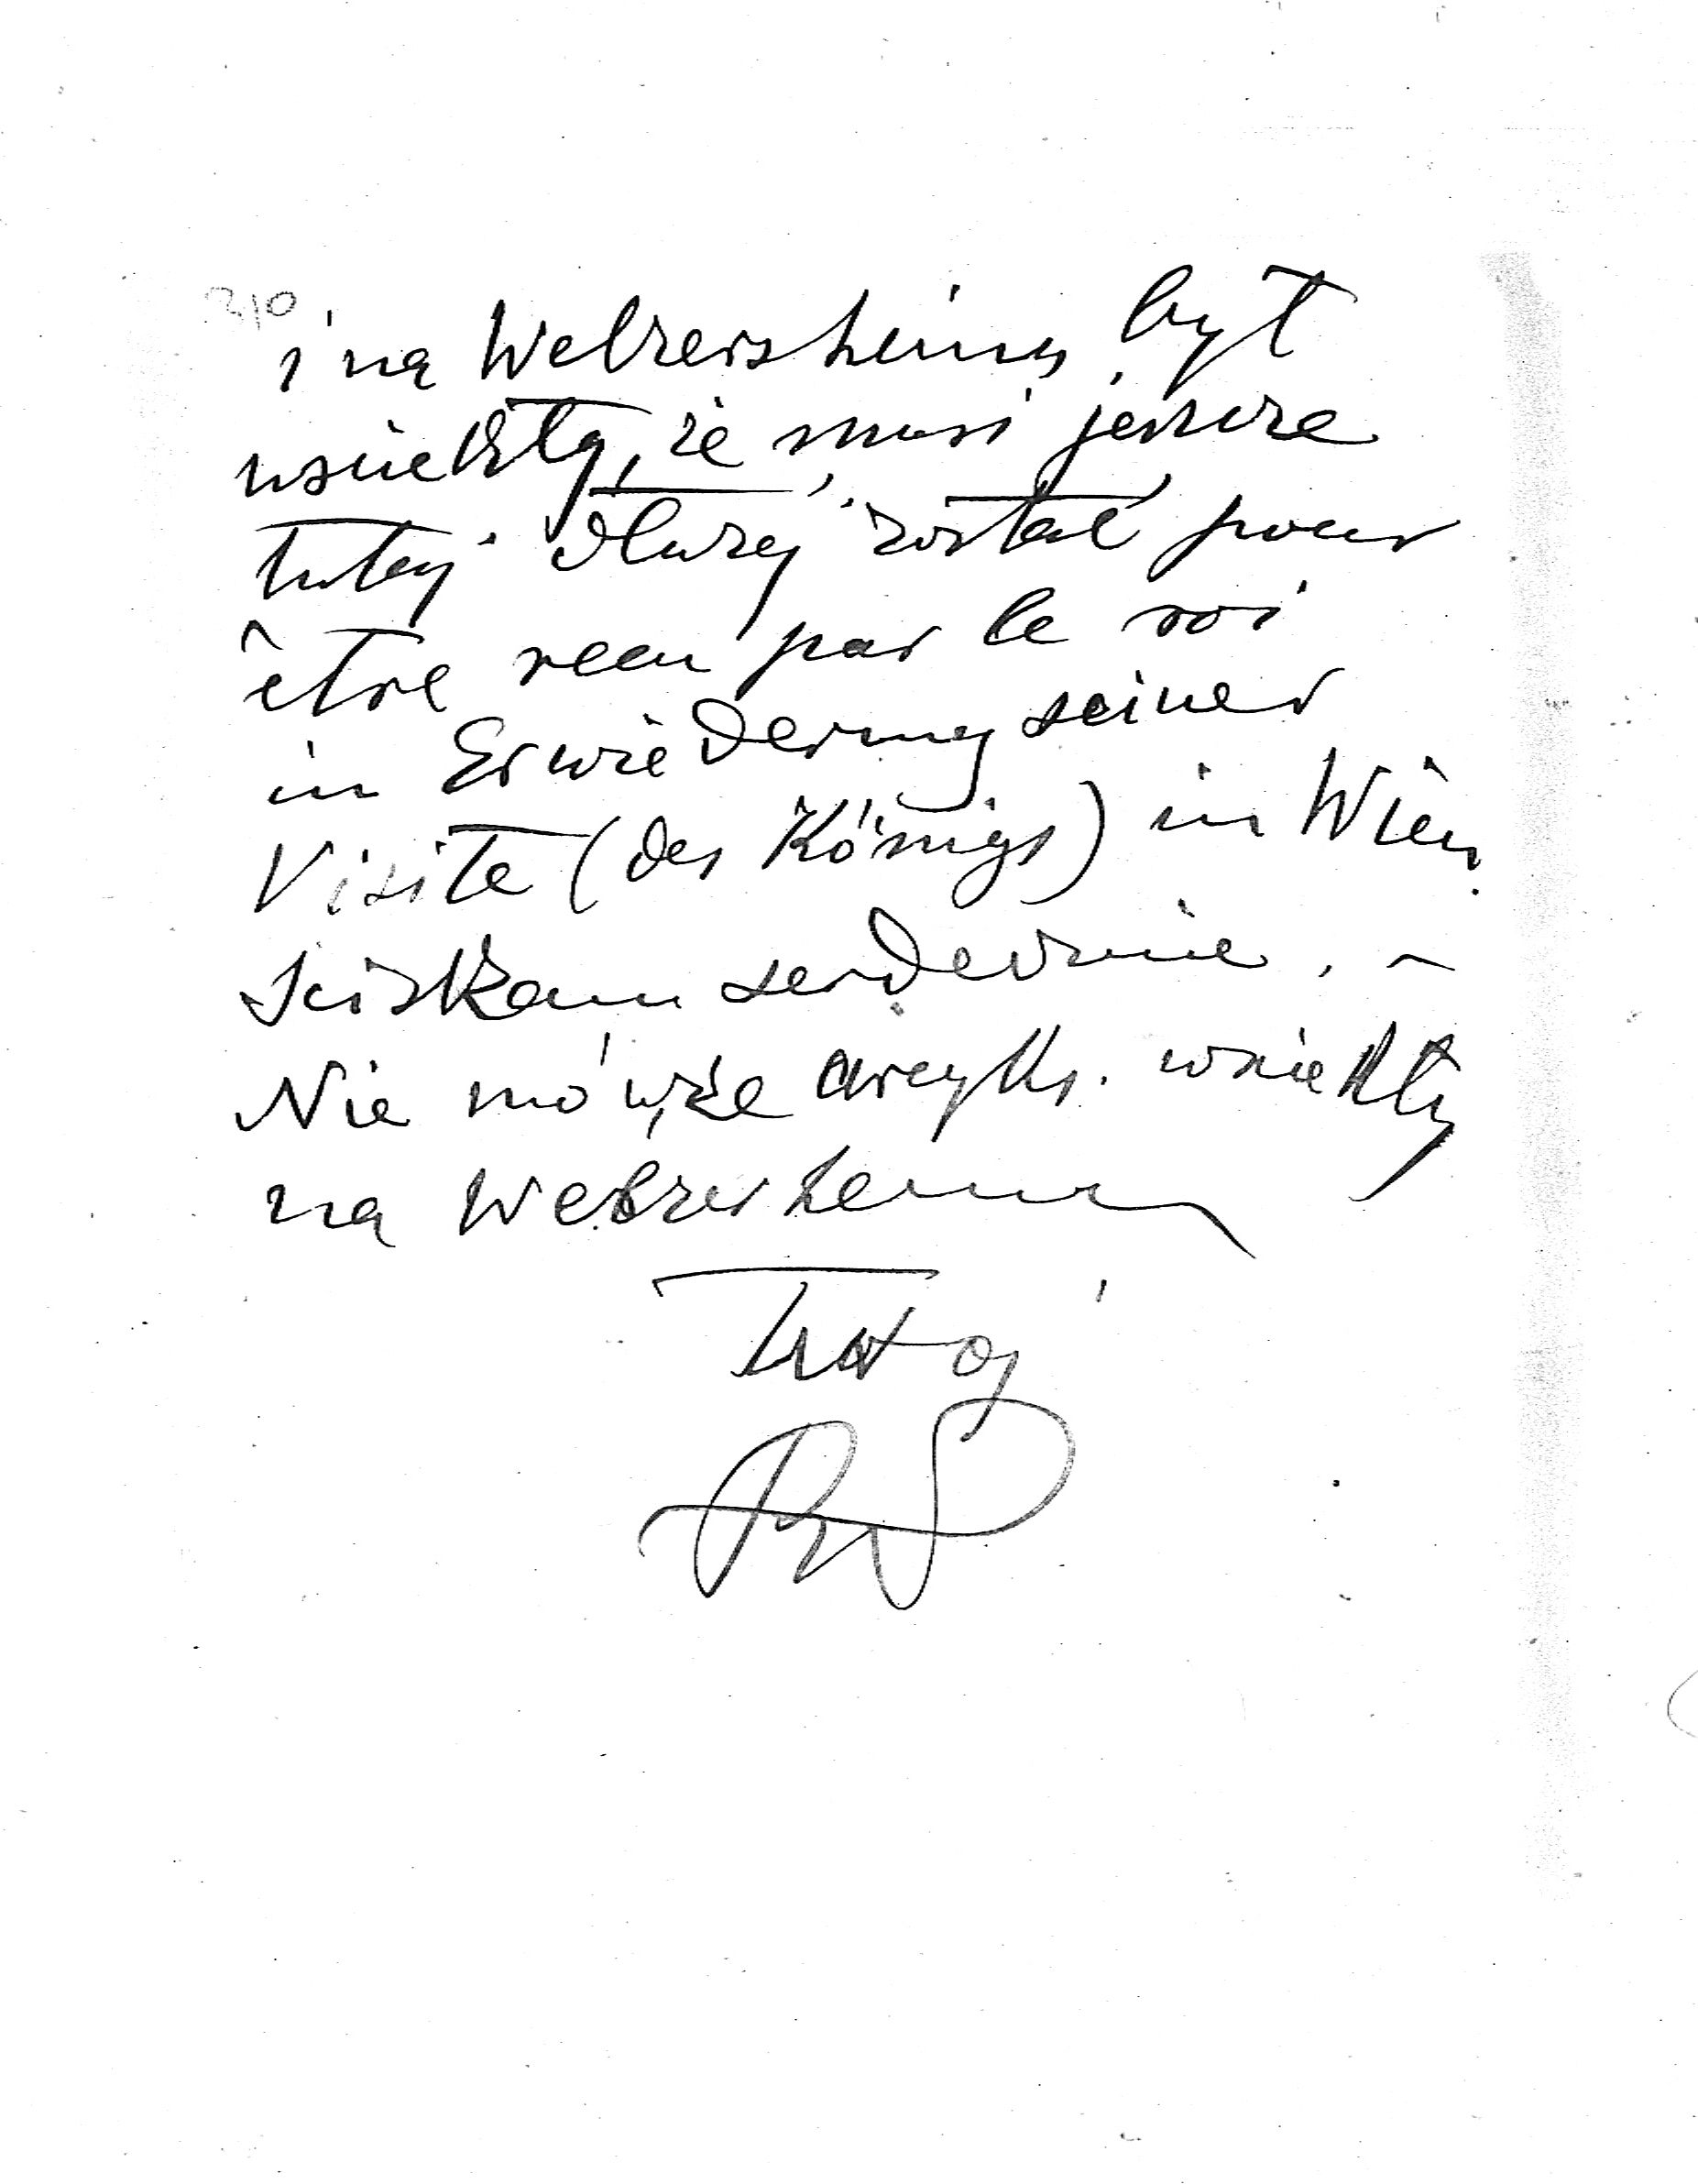 310
i na Welzersheimb, był
wściekły, że musi jeszcze
tutaj dłużej zostać pour
être recu par le roi
in Erwiederung seiner
Visite (des Königs) in Wien.
Sciskam serdecznie. –
Nie mów, że arcyks. wściekły
na Welzersheimb
Twój